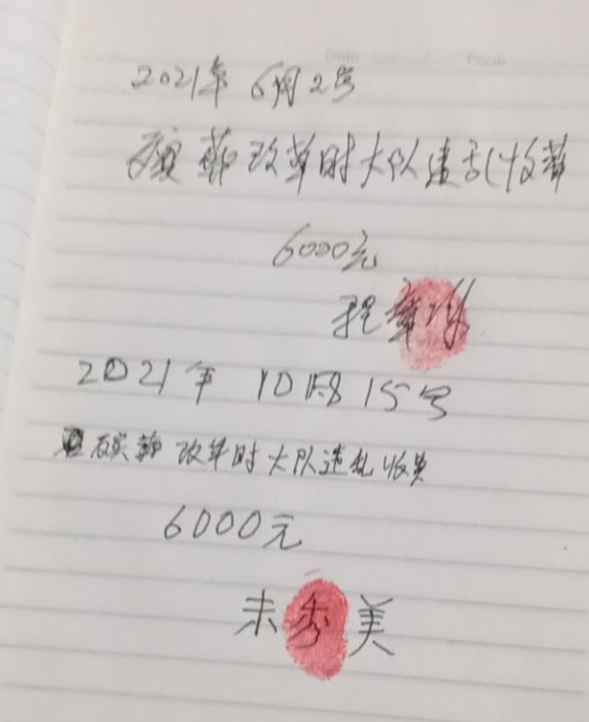 2021年 6月2号
改革时大队违乱收
6000元
程章
2021年 10月 15号
改革时大队违乱收费
6000元
未秀美